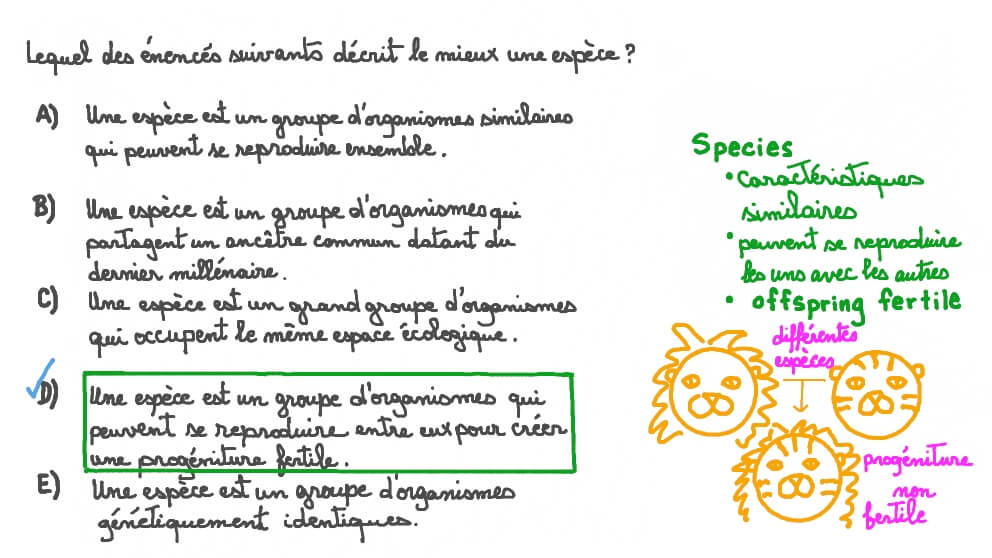 Lequel des énoncés suivants décrit le mieux une espèce ?
A) Une espèce est un groupe d'organismes similaires
qui peuvent se reproduire ensemble.
B) Une espèce est un groupe d'organismes qui
partagent un ancêtre commun datant du
dernier millénaire.
C) Une espèce est un grand groupe d'organismes
qui occupent le même espace écologique.
D) Une espèce est un groupe d'organismes qui
peuvent se reproduire entre eux pour créer
une progéniture fertile.
E) Une espèce est un groupe d'organismes
génétiquement identiques.
Species
• Caractéristiques
similaires
• peuvent se reproduire
les uns avec les autres
• offspring fertile
différentes
espèces
progéniture
non
fertile